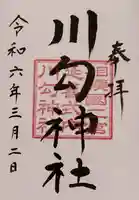 奉拝
川勾神社
令和六年三月二日